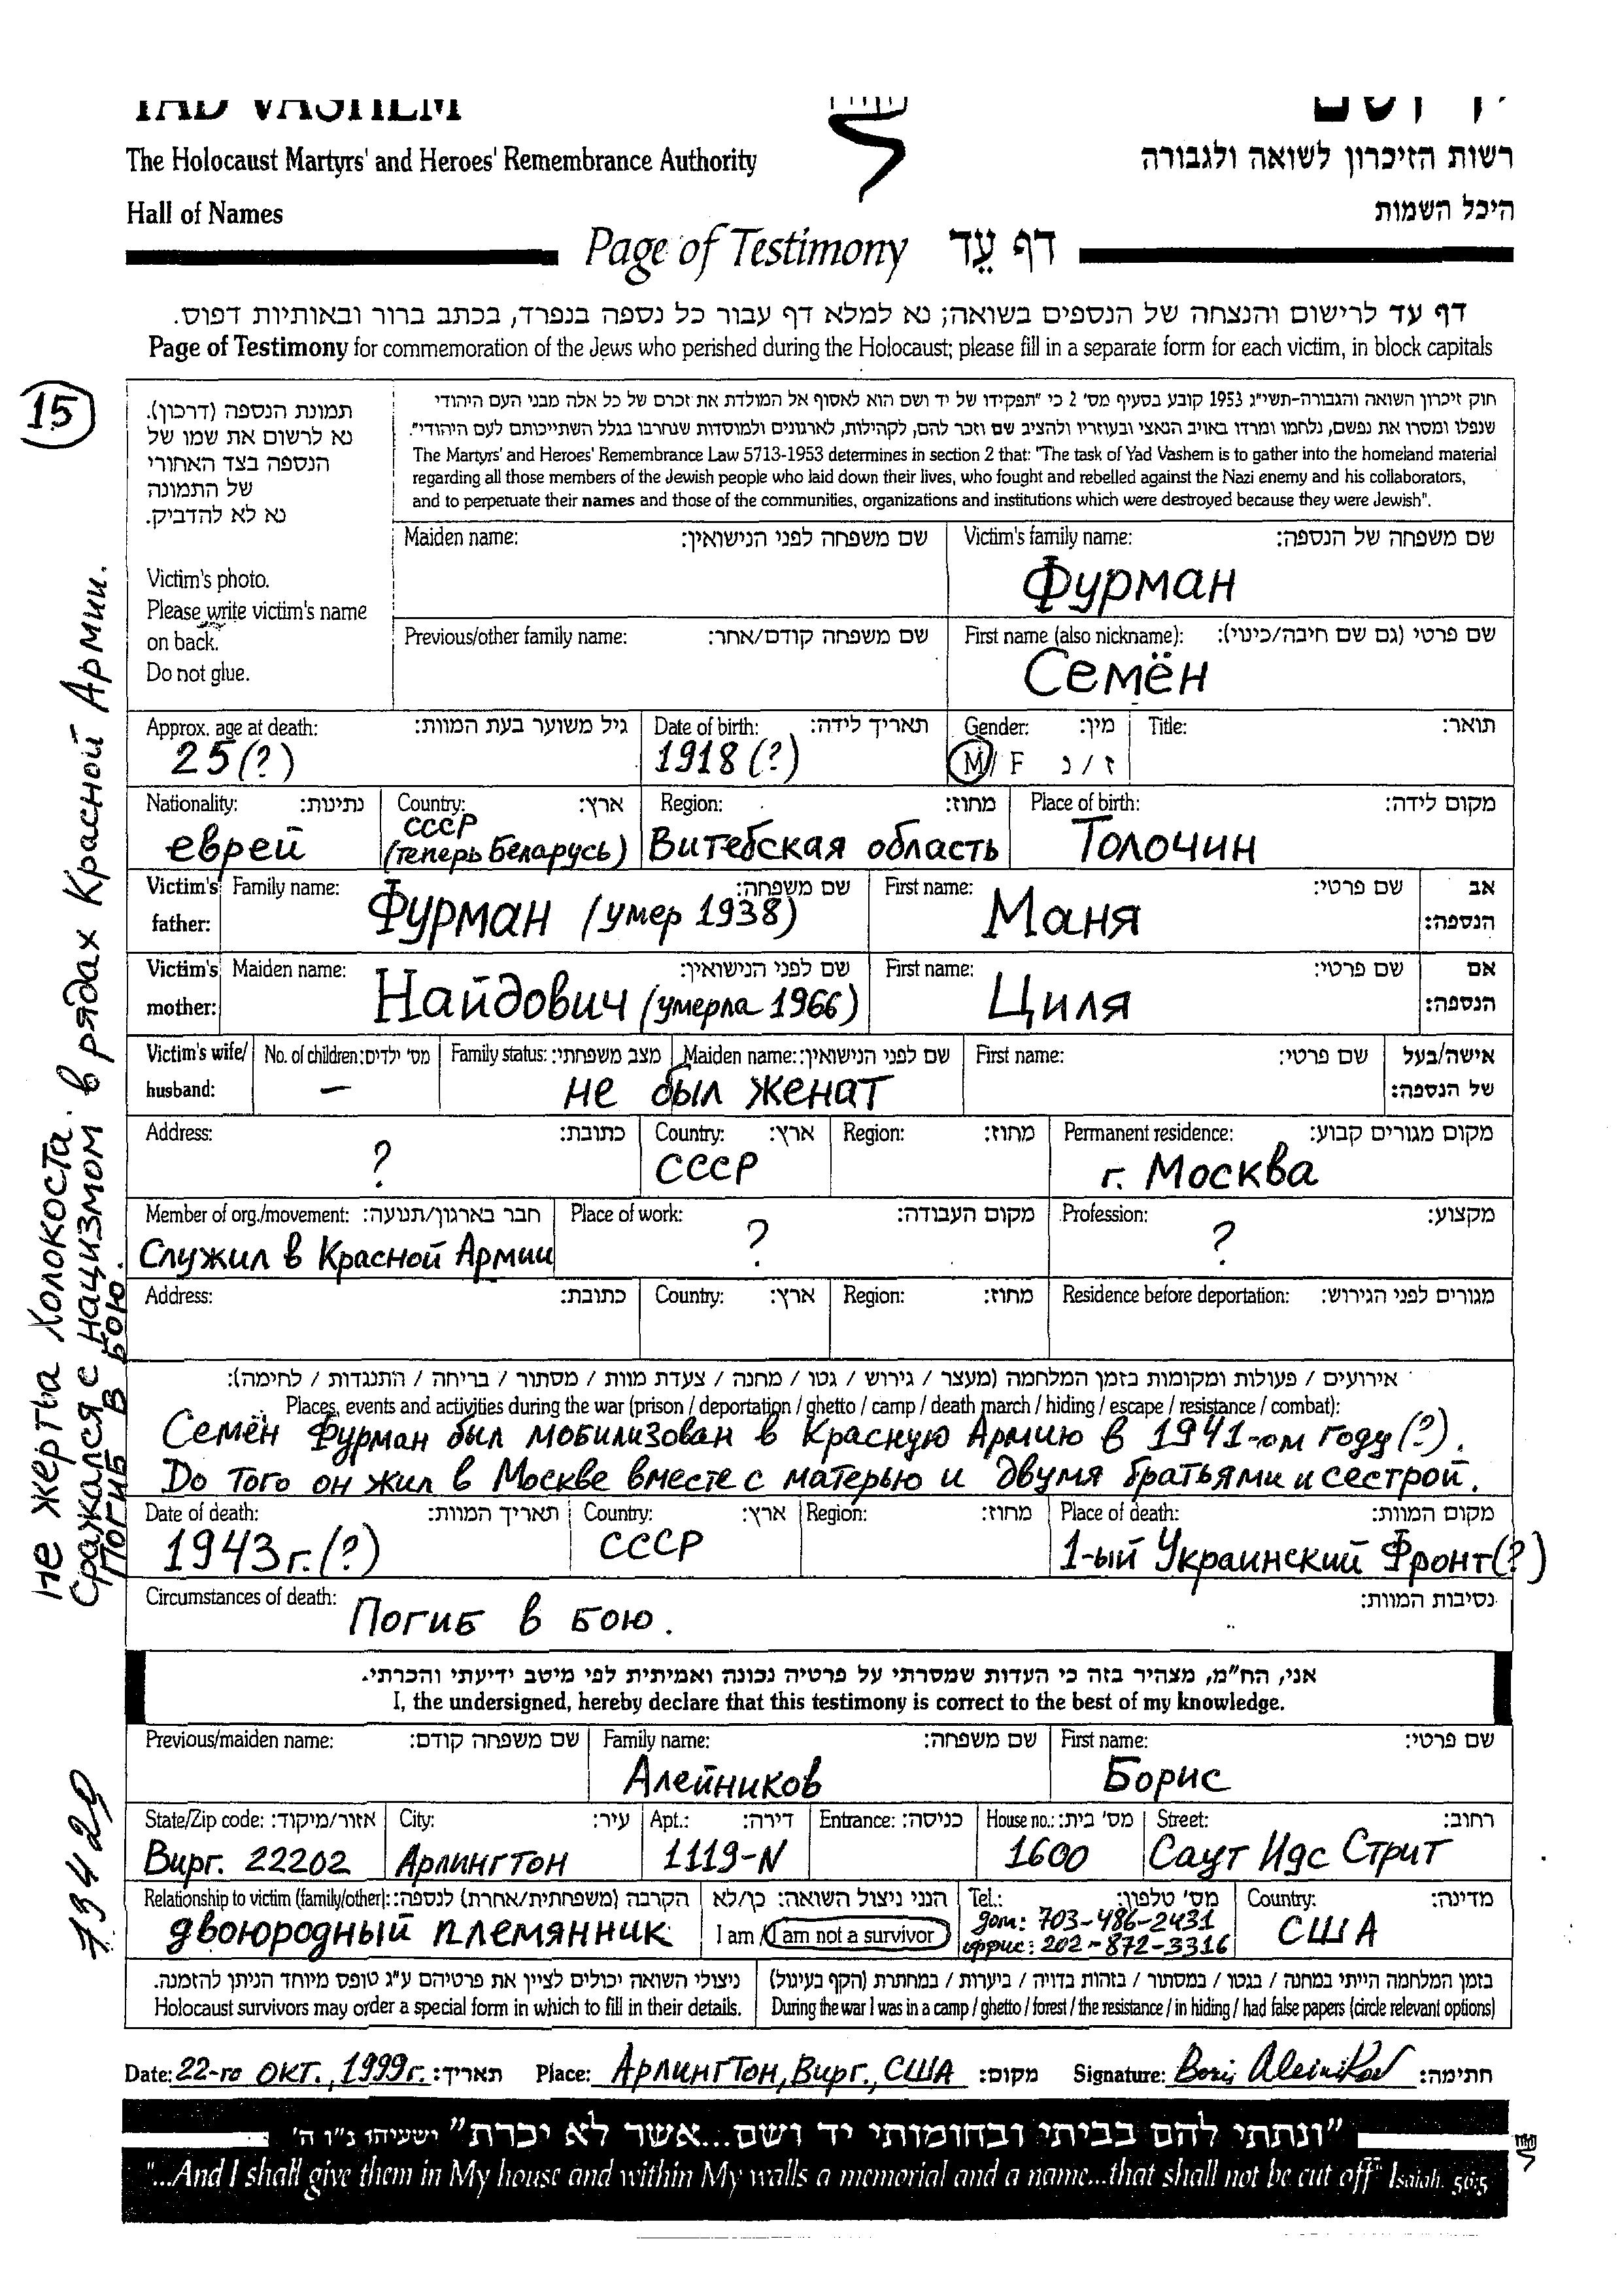 YAD VASHEM
יד ושם
The Holocaust Martyrs' and Heroes' Remembrance Authority
רשות הזיכרון לשואה ולגבורה
Hall of Names
היכל השמות
Page of Testimony דף עֵד
דף עד לרישום והנצחה של הנספים בשואה; נא למלא דף עבור כל נספה בנפרד, בכתב ברור ובאותיות דפוס.
Page of Testimony for commemoration of the Jews who perished during the Holocaust; please fill in a separate form for each victim, in block capitals
15
תמונת הנספה (דרכון).
נא לרשום את שמו של
הנספה בצד האחורי
של התמונה
נא לא להדביק.
Victim's photo.
Please write victim's name
on back.
Do not glue.
חוק זיכרון השואה והגבורה-תשי"ג 1953 קובע בסעיף מס' 2 כי "תפקידו של יד ושם הוא לאסוף אל המולדת את זכרם של כל אלה מבני העם היהודי
שנפלו ומסרו את נפשם, נלחמו ומרדו באויב הנאצי ובעוזריו ולהציב שם וזכר להם, לקהילות, לארגונים ולמוסדות שנחרבו בגלל השתייכותם לעם היהודי".
The Martyrs' and Heroes' Remembrance Law 5713-1953 determines in section 2 that: "The task of Yad Vashem is to gather into the homeland material
regarding all those members of the Jewish people who laid down their lives, who fought and rebelled against the Nazi enemy and his collaborators,
and to perpetuate their names and those of the communities, organizations and institutions which were destroyed because they were Jewish".
Maiden name: שם משפחה לפני הנישואין: Victim's family name: שם משפחה של הנספה:
Фурман
Previous/other family name: שם משפחה קודם/אחר: First name (also nickname): שם פרטי (גם שם חיבה/כינוי):
Семён
Approx. age at death: גיל משוער בעת המוות: Date of birth: תאריך לידה: Gender: מין: Title: תואר:
25(?) 1918(?) M/F ז/נ
Nationality: נתינות: Country: ארץ: Region: מחוז: Place of birth: מקום לידה:
еврей СССР (теперь Беларусь) Витебская область Толочин
Victim's father: Family name: שם משפחה: First name: שם פרטי: אב הנספה:
Фурман (умер 1938) Маня
Victim's mother: Maiden name: שם לפני הנישואין: First name: שם פרטי: אם הנספה:
Найдович (умерла 1966) Циля
Victim's wife/husband: No. of children: מס' ילדים: Family status: מצב משפחתי: Maiden name: שם לפני הנישואין: First name: שם פרטי: אישה/בעל של הנספה:
— не был женат
Address: כתובת: Country: ארץ: Region: מחוז: Permanent residence: מקום מגורים קבוע:
? СССР г. Москва
Member of org./movement: חבר בארגון/תנועה: Place of work: מקום העבודה: Profession: מקצוע:
Служил в Красной Армии ? ?
Address: כתובת: Country: ארץ: Region: מחוז: Residence before deportation: מגורים לפני הגירוש:
אירועים / פעולות ומקומות בזמן המלחמה (מעצר / גירוש / גטו / מחנה / צעדת מוות / מסתור / בריחה / התנגדות / לחימה):
Places, events and activities during the war (prison / deportation / ghetto / camp / death march / hiding / escape / resistance / combat):
Семён Фурман был мобилизован в Красную Армию в 1941-ом году(?).
До того он жил в Москве вместе с матерью и двумя братьями и сестрой.
Date of death: תאריך המוות: Country: ארץ: Region: מחוז: Place of death: מקום המוות:
1943г.(?) СССР 1-ый Украинский Фронт(?)
Circumstances of death: נסיבות המוות:
Погиб в бою.
אני, הח"מ, מצהיר בזה כי העדות שמסרתי על פרטיה נכונה ואמיתית לפי מיטב ידיעתי והכרתי.
I, the undersigned, hereby declare that this testimony is correct to the best of my knowledge.
Previous/maiden name: שם משפחה קודם: Family name: שם משפחה: First name: שם פרטי:
Алейников Борис
State/Zip code: אזור/מיקוד: City: עיר: Apt.: דירה: Entrance: כניסה: House no.: מס' בית: Street: רחוב:
Вирг. 22202 Арлингтон 1119-N 1600 Саут Идс Стрит
Relationship to victim (family/other): הקרבה (משפחתית/אחרת) לנספה: הנני ניצול השואה: כן/לא Tel.: מס' טלפון: Country: מדינה:
двоюродный племянник I am / I am not a survivor дом: 703-486-2431 США
оффис: 202-872-3316
ניצולי השואה יכולים לציין את פרטיהם ע"ג טופס מיוחד הניתן להזמנה.
Holocaust survivors may order a special form in which to fill in their details.
בזמן המלחמה הייתי במחנה / בגטו / במסתור / בזהות בדויה / ביערות / במחתרת (הקף בעיגול)
During the war I was in a camp / ghetto / forest / the resistance / in hiding / had false papers (circle relevant options)
Date: 22-го окт., 1999г. תאריך: Place: Арлингтон, Вирг., США מקום: Signature: Boris Aleinikov חתימה:
"ונתתי להם בביתי ובחומותי יד ושם...אשר לא יכרת" ישעיהו נ"ו ה'
"...And I shall give them in My house and within My walls a memorial and a name...that shall not be cut off" Isaiah. 56:5
Не жертва Холокоста.
Сражался с нацизмом в рядах Красной Армии.
Погиб в бою.